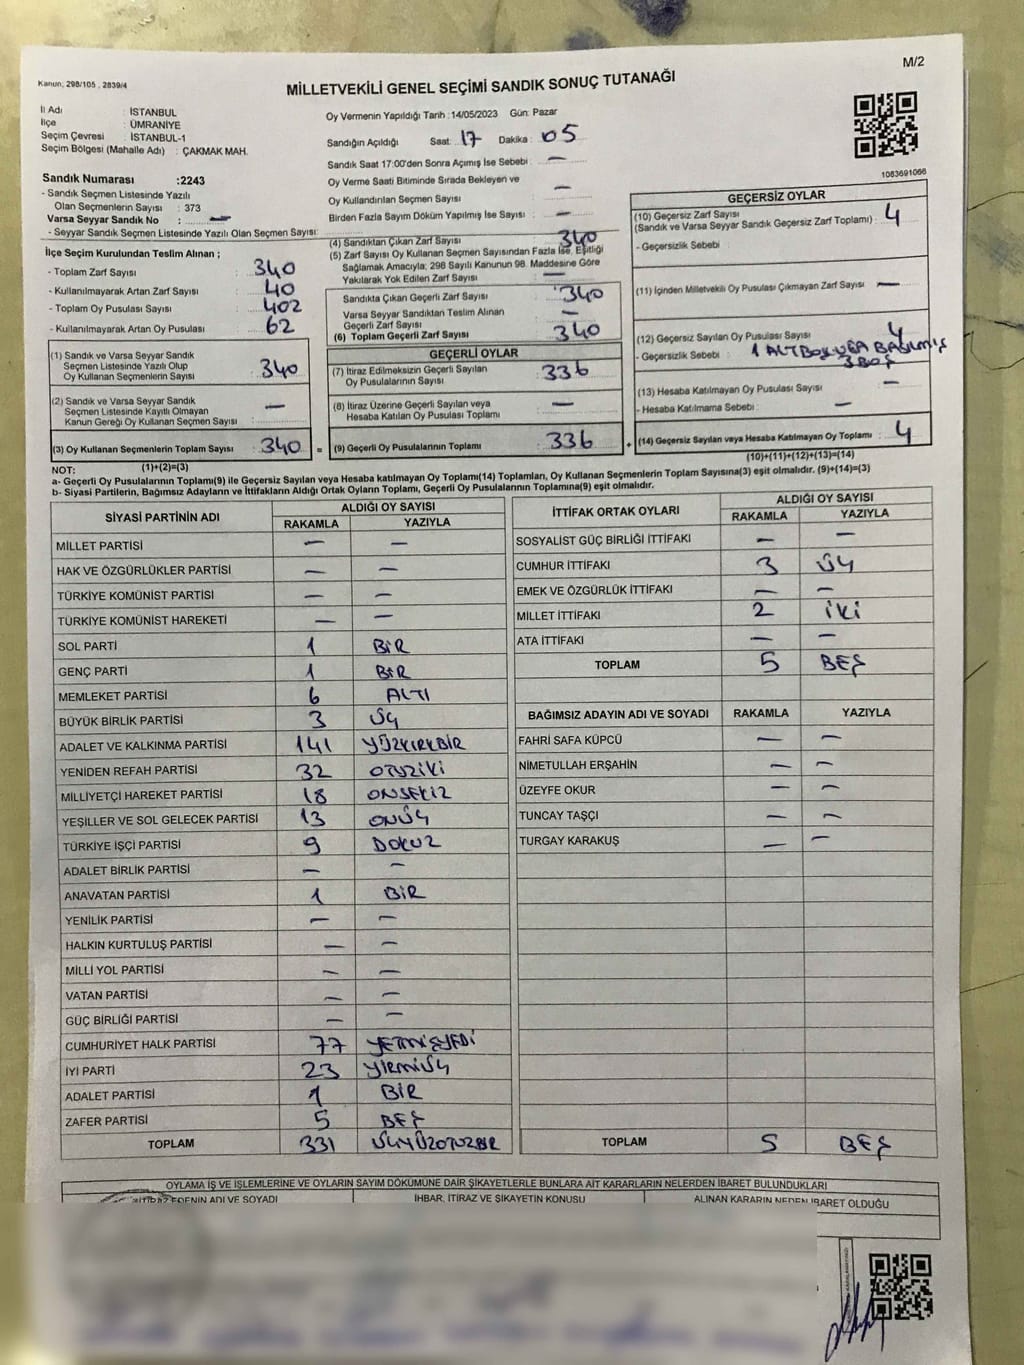 M/2
Kanun; 298/105 , 2839/4
MİLLETVEKİLİ GENEL SEÇİMİ SANDIK SONUÇ TUTANAĞI
İl Adı : İSTANBUL
İlçe : ÜMRANİYE
Seçim Çevresi : İSTANBUL-1
Seçim Bölgesi (Mahalle Adı) : ÇAKMAK MAH.
Sandık Numarası :2243
- Sandık Seçmen Listesinde Yazılı
Olan Seçmenlerin Sayısı : 373
Varsa Seyyar Sandık No : —
- Seyyar Sandık Seçmen Listesinde Yazılı Olan Seçmen Sayısı:
Oy Vermenin Yapıldığı Tarih :14/05/2023 Gün: Pazar
Sandığın Açıldığı Saat: 17 Dakika : 05
Sandık Saat 17:00'den Sonra Açımış İse Sebebi : —
Oy Verme Saati Bitiminde Sırada Bekleyen ve
Oy Kullandırılan Seçmen Sayısı : —
Birden Fazla Sayım Döküm Yapılmış İse Sayısı : —
1083691066
İlçe Seçim Kurulundan Teslim Alınan ;
- Toplam Zarf Sayısı : 340
- Kullanılmayarak Artan Zarf Sayısı : 40
- Toplam Oy Pusulası Sayısı : 402
- Kullanılmayarak Artan Oy Pusulası : 62
(1) Sandık ve Varsa Seyyar Sandık
Seçmen Listesinde Yazılı Olup
Oy Kullanan Seçmenlerin Sayısı : 340
(2) Sandık ve Varsa Seyyar Sandık
Seçmen Listesinde Kayıtlı Olmayan
Kanun Gereği Oy Kullanan Seçmen Sayısı : —
(3) Oy Kullanan Seçmenlerin Toplam Sayısı : 340 =
(4) Sandıktan Çıkan Zarf Sayısı : 340
(5) Zarf Sayısı Oy Kullanan Seçmen Sayısından Fazla İse, Eşitliği
Sağlamak Amacıyla; 298 Sayılı Kanunun 98. Maddesine Göre
Yakılarak Yok Edilen Zarf Sayısı : —
Sandıkta Çıkan Geçerli Zarf Sayısı : 340
Varsa Seyyar Sandıktan Teslim Alınan
Geçerli Zarf Sayısı : —
(6) Toplam Geçerli Zarf Sayısı : 340
GEÇERLİ OYLAR
(7) İtiraz Edilmeksizin Geçerli Sayılan
Oy Pusulalarının Sayısı : 336
(8) İtiraz Üzerine Geçerli Sayılan veya
Hesaba Katılan Oy Pusulası Toplamı : —
(9) Geçerli Oy Pusulalarının Toplamı : 336 +
GEÇERSİZ OYLAR
(10) Geçersiz Zarf Sayısı
(Sandık ve Varsa Seyyar Sandık Geçersiz Zarf Toplamı) : 4
- Geçersizlik Sebebi :
(11) İçinden Milletvekili Oy Pusulası Çıkmayan Zarf Sayısı : —
(12) Geçersiz Sayılan Oy Pusulası Sayısı : 4
- Geçersizlik Sebebi : 1 ALTBOŞLUĞA BAĞIMIŞ
3 BOŞ
(13) Hesaba Katılmayan Oy Pusulası Sayısı : —
- Hesaba Katılmama Sebebi : —
(14) Geçersiz Sayılan veya Hesaba Katılmayan Oy Toplamı : 4
NOT: (1)+(2)=(3)
(10)+(11)+(12)+(13)=(14)
a- Geçerli Oy Pusulalarının Toplamı(9) ile Geçersiz Sayılan veya Hesaba katılmayan Oy Toplamı(14) Toplamları, Oy Kullanan Seçmenlerin Toplam Sayısına(3) eşit olmalıdır. (9)+(14)=(3)
b- Siyasi Partilerin, Bağımsız Adayların ve İttifakların Aldığı Ortak Oyların Toplamı, Geçerli Oy Pusulalarının Toplamına(9) eşit olmalıdır.
SİYASİ PARTİNİN ADI ALDIĞI OY SAYISI
RAKAMLA YAZIYLA
MİLLET PARTİSİ — —
HAK VE ÖZGÜRLÜKLER PARTİSİ — —
TÜRKİYE KOMÜNİST PARTİSİ — —
TÜRKİYE KOMÜNİST HAREKETİ — —
SOL PARTİ 1 BİR
GENÇ PARTİ 1 BİR
MEMLEKET PARTİSİ 6 ALTI
BÜYÜK BİRLİK PARTİSİ 3 ÜÇ
ADALET VE KALKINMA PARTİSİ 141 YÜZKIRKBİR
YENİDEN REFAH PARTİSİ 32 OTUZİKİ
MİLLİYETÇİ HAREKET PARTİSİ 18 ONSEKİZ
YEŞİLLER VE SOL GELECEK PARTİSİ 13 ONÜÇ
TÜRKİYE İŞÇİ PARTİSİ 9 DOKUZ
ADALET BİRLİK PARTİSİ — —
ANAVATAN PARTİSİ 1 BİR
YENİLİK PARTİSİ — —
HALKIN KURTULUŞ PARTİSİ — —
MİLLİ YOL PARTİSİ — —
VATAN PARTİSİ — —
GÜÇ BİRLİĞİ PARTİSİ — —
CUMHURİYET HALK PARTİSİ 77 YETMİŞYEDİ
İYİ PARTİ 23 YİRMİÜÇ
ADALET PARTİSİ 1 BİR
ZAFER PARTİSİ 5 BEŞ
TOPLAM 331 ÜÇYÜZOTUZBİR
İTTİFAK ORTAK OYLARI ALDIĞI OY SAYISI
RAKAMLA YAZIYLA
SOSYALİST GÜÇ BİRLİĞİ İTTİFAKI — —
CUMHUR İTTİFAKI 3 ÜÇ
EMEK VE ÖZGÜRLÜK İTTİFAKI — —
MİLLET İTTİFAKI 2 İKİ
ATA İTTİFAKI — —
TOPLAM 5 BEŞ
BAĞIMSIZ ADAYIN ADI VE SOYADI RAKAMLA YAZIYLA
FAHRİ SAFA KÜPCÜ — —
NİMETULLAH ERŞAHİN — —
ÜZEYFE OKUR — —
TUNCAY TAŞÇI — —
TURGAY KARAKUŞ — —
TOPLAM 5 BEŞ
OYLAMA İŞ VE İŞLEMLERİNE VE OYLARIN SAYIM DÖKÜMÜNE DAİR ŞİKAYETLERLE BUNLARA AİT KARARLARIN NELERDEN İBARET BULUNDUKLARI
İTİRAZ EDENİN ADI VE SOYADI İHBAR, İTİRAZ VE ŞİKAYETİN KONUSU ALINAN KARARIN NEDEN İBARET OLDUĞU